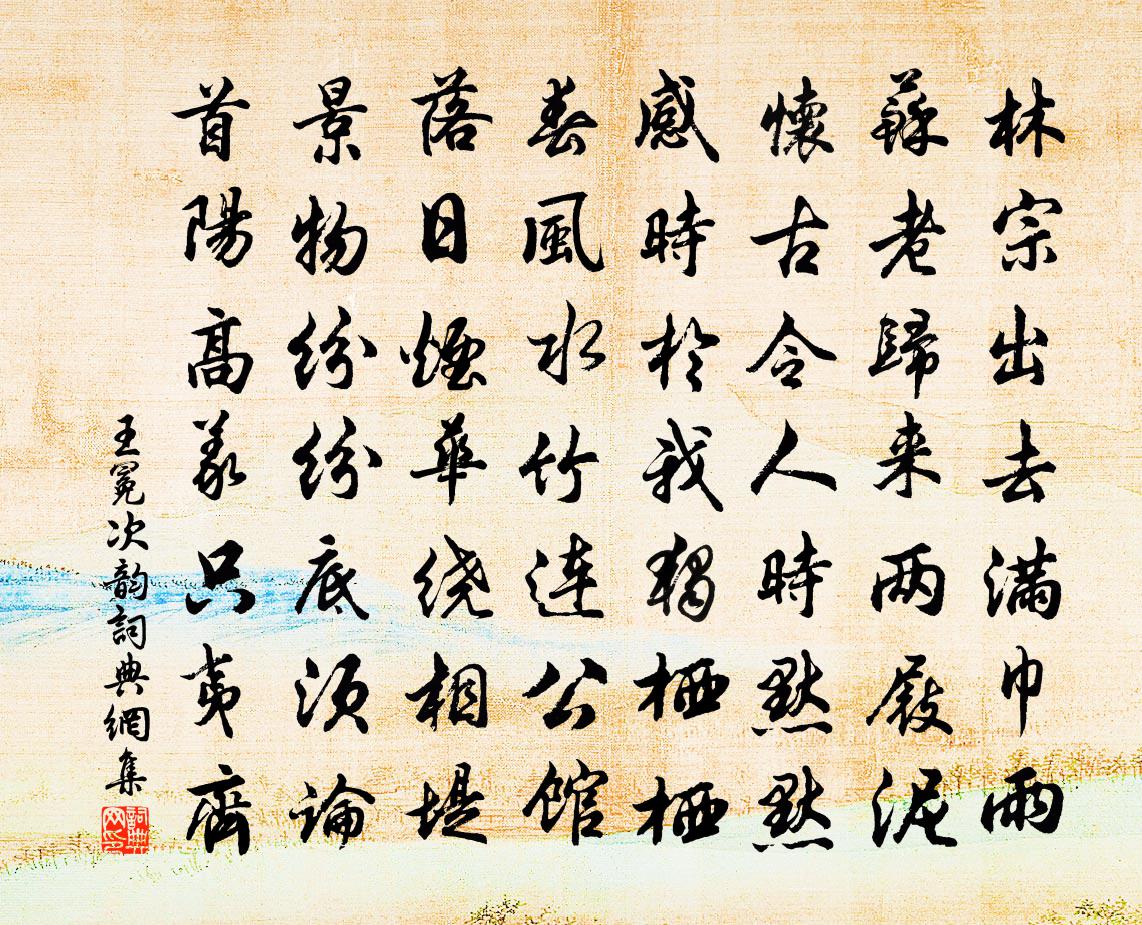 林宗出去滿巾雨
蘇老歸来两屐泥
懷古令人時黙黙
感時於我獨栖栖
春風水竹連公館
落日煙華繞相堤
景物紛紛底須論
首陽高義只夷齊
王冕次韵詞典網集